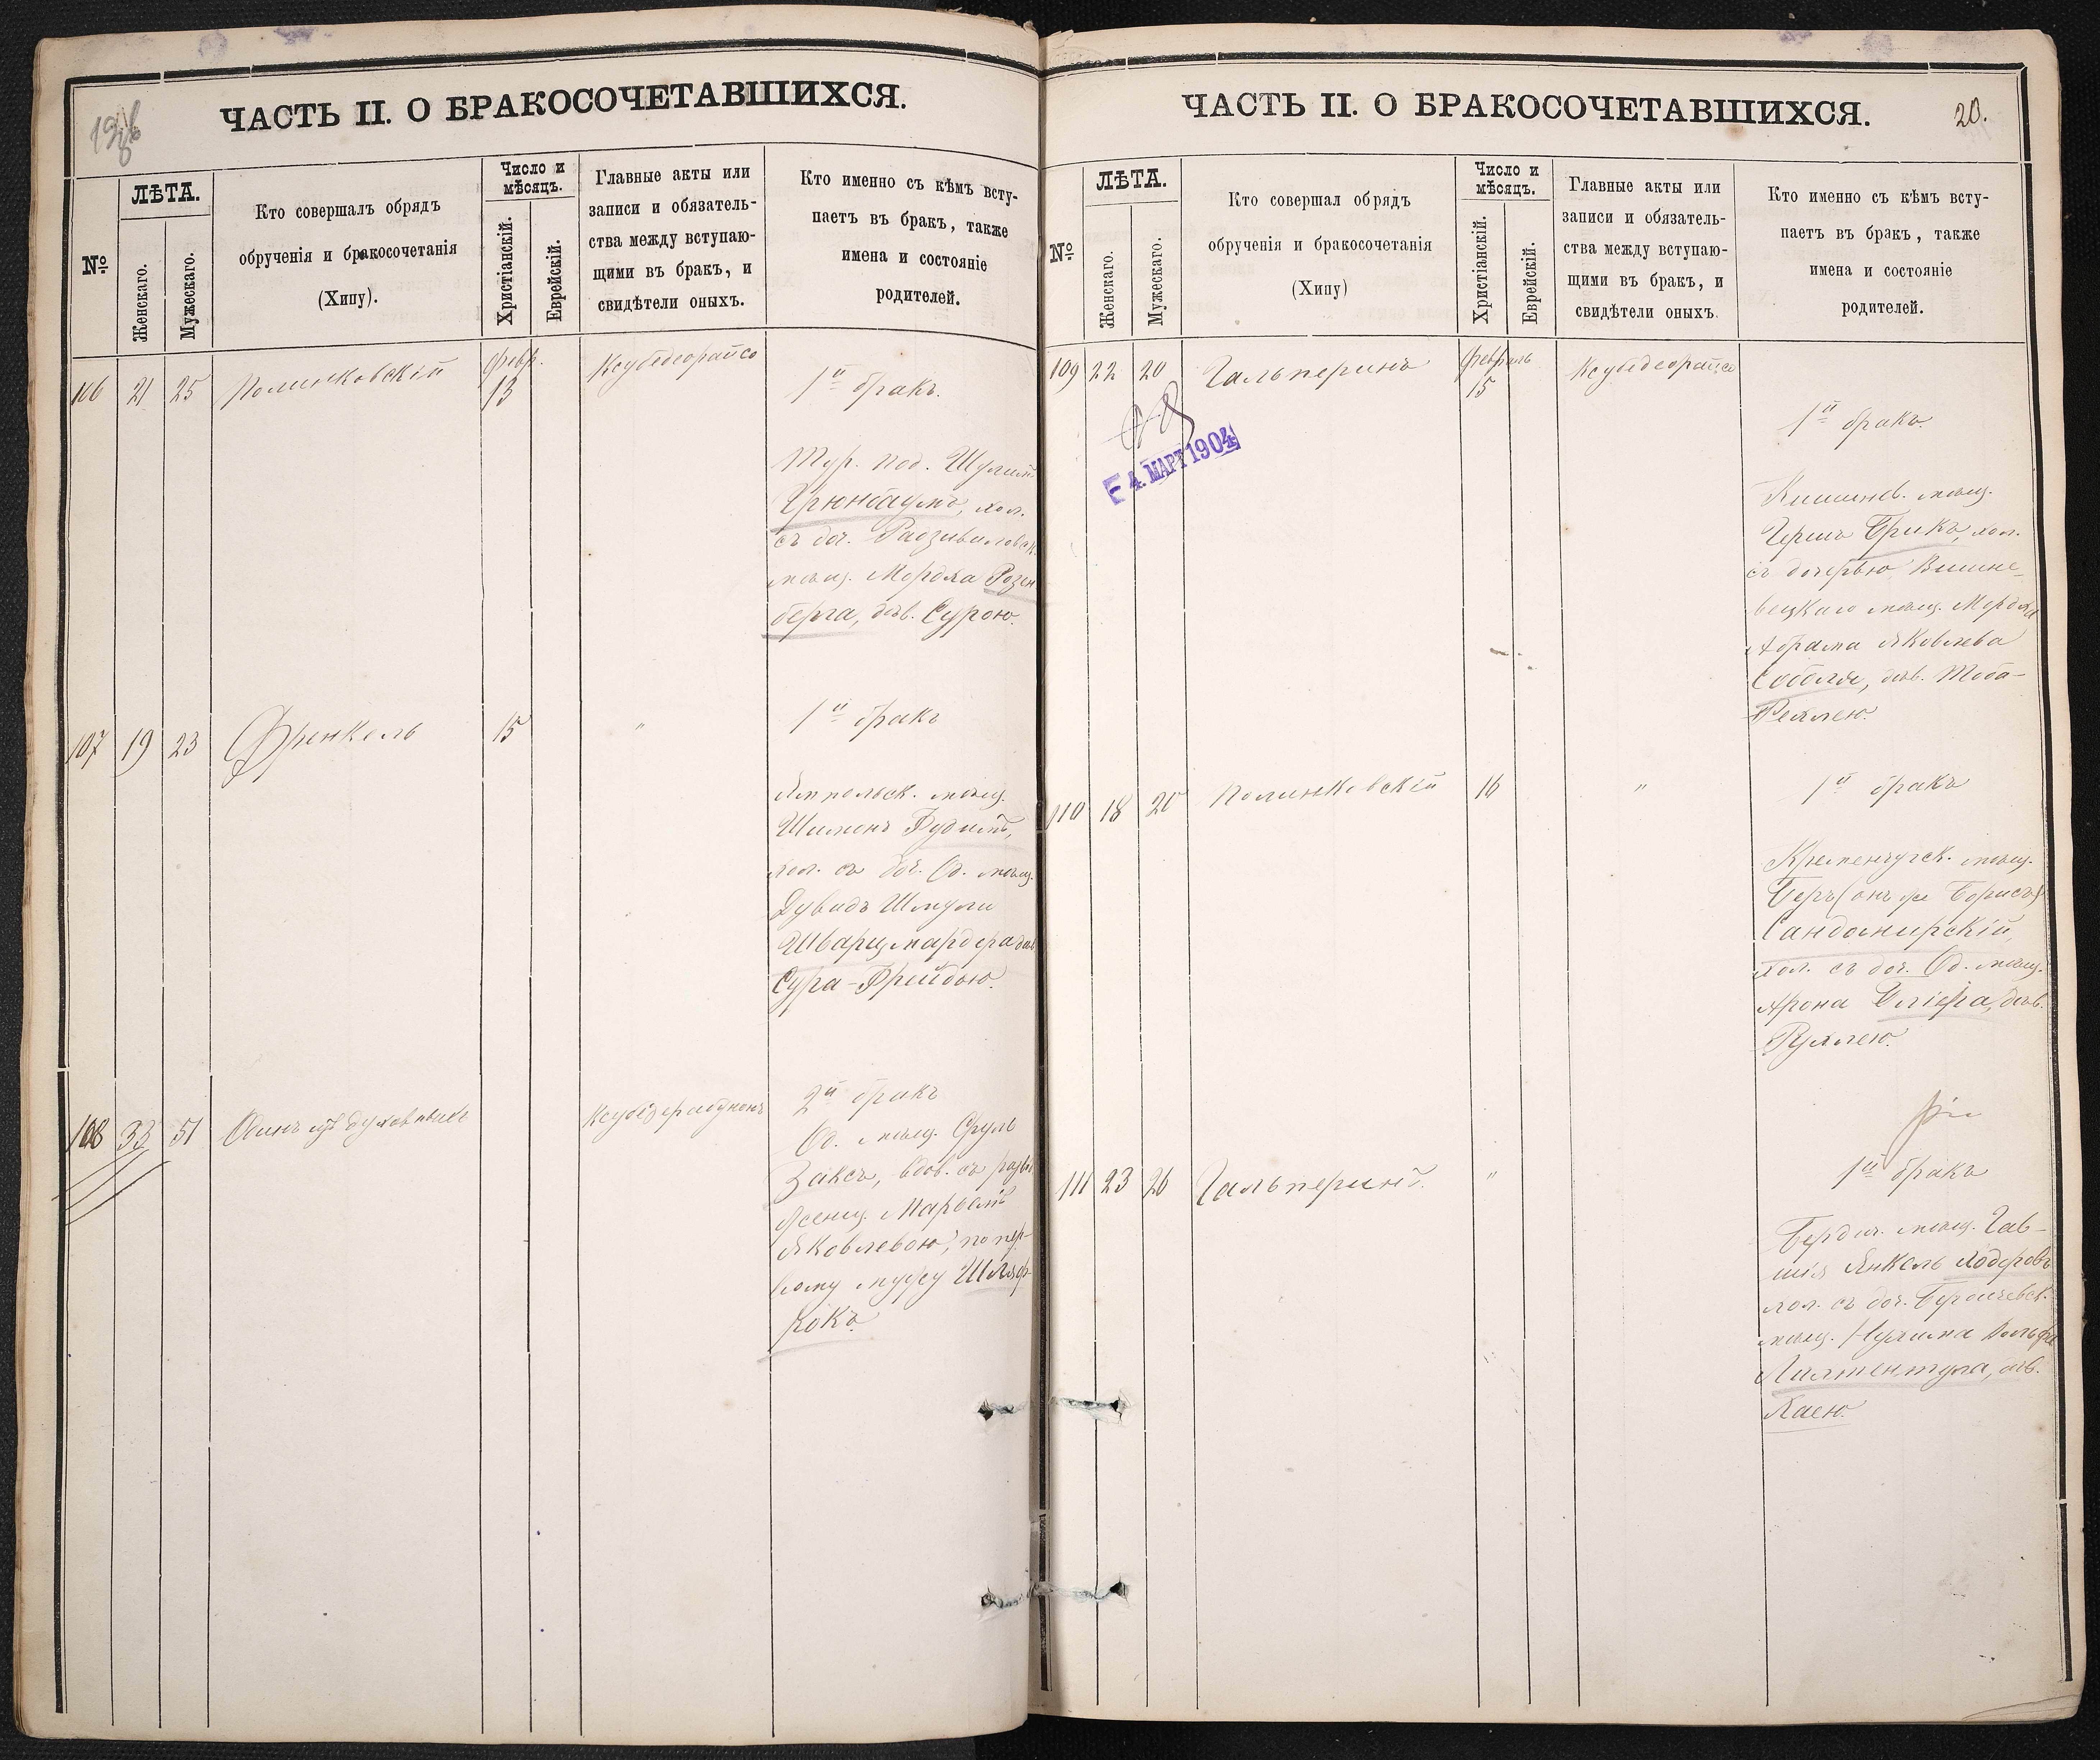 ЧАСТЬ II. О БРАКОСОЧЕТАВШИХСЯ.
№
ЛѢТА.
Женскаго.
Мужескаго.
Кто совершалъ обрядъ
обрученія и бракосочетанія
(Хипу).
Число и
мѣсяцъ.
Христіанскій.
Еврейскій.
Главные акты или
записи и обязатель-
ства между вступаю-
щими въ бракъ, и
свидѣтели оныхъ.
Кто именно съ кѣмъ всту-
паетъ въ бракъ, также
имена и состояніе
родителей.
106 21 25 Полинковскій
Февр.
13
Ксубедеорайсо
1й бракъ.
Тур. под. Шулимъ
Грюнбаумъ, хол.
съ доч. Радзивиловск.
мѣщ. Мордха Розен
берга, дѣв. Сурою.
107 19 23 Френкель 15 "
1й бракъ
Ямпольск. мѣщ.
Шимонъ Будимъ,
хол. съ доч. Од. мѣщ.
Дувидъ Шмули
Шварцмардера дѣв
Сура-Фрейдою.
108 33 51 Одинъ изъ духовныхъ
Ксубедерабунонъ
2й бракъ
Од. мѣщ. Сруль
Заксъ, вдов. съ разв.
Ясениц. Марьемъ
Яковлевою, по пер-
вому мужу Шляф-
рокъ.
ЧАСТЬ II. О БРАКОСОЧЕТАВШИХСЯ.
20.
№
ЛѢТА.
Женскаго.
Мужескаго.
Кто совершал обрядъ
обрученія и бракосочетанія
(Хипу)
Число и
мѣсяцъ.
Христіанскій.
Еврейскій.
Главные акты или
записи и обязатель-
ства между вступаю-
щими въ бракъ, и
свидѣтели оныхъ.
Кто именно съ кѣмъ всту-
паетъ въ бракъ, также
имена и состояніе
родителей.
109 22 20 Гальперинъ
Февраль
15
Ксубедеорайсо
4. МАРТ 1904
1й бракъ.
Кишинев. мѣщ.
Гершъ Брикъ, хол.
съ дочерью Вишне-
вецкаго мѣщ. Мордха
Абрама Яковлева
Соболя, дѣв. Тоба-
Рейзлею.
110 18 20 Полинковскій 16 "
1й бракъ
Кременчугск. мѣщ.
Беръ (онъ же Борисъ)
Сандомирскій,
хол. съ доч. Од. мѣщ.
Арона Оліера, дѣв.
Рухлею.
111 23 26 Гальперинъ. "
1й бракъ
Бердич. мѣщ. Гав-
шія Янкель Ходоровъ
хол. съ доч. Бердичевск.
мѣщ. Нухима Вольфа
Лихтентула, дѣв.
Хаею.